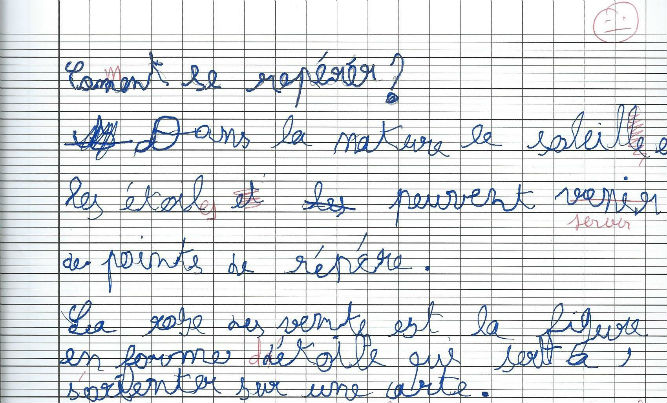 Comment se repérér ?
Dans la nature le soleille
les étoiles et les peuvent venir
servir
de points de répére.
La rose des vents est la figure
en forme d'étoile qui sert à
s'orienter sur une carte.